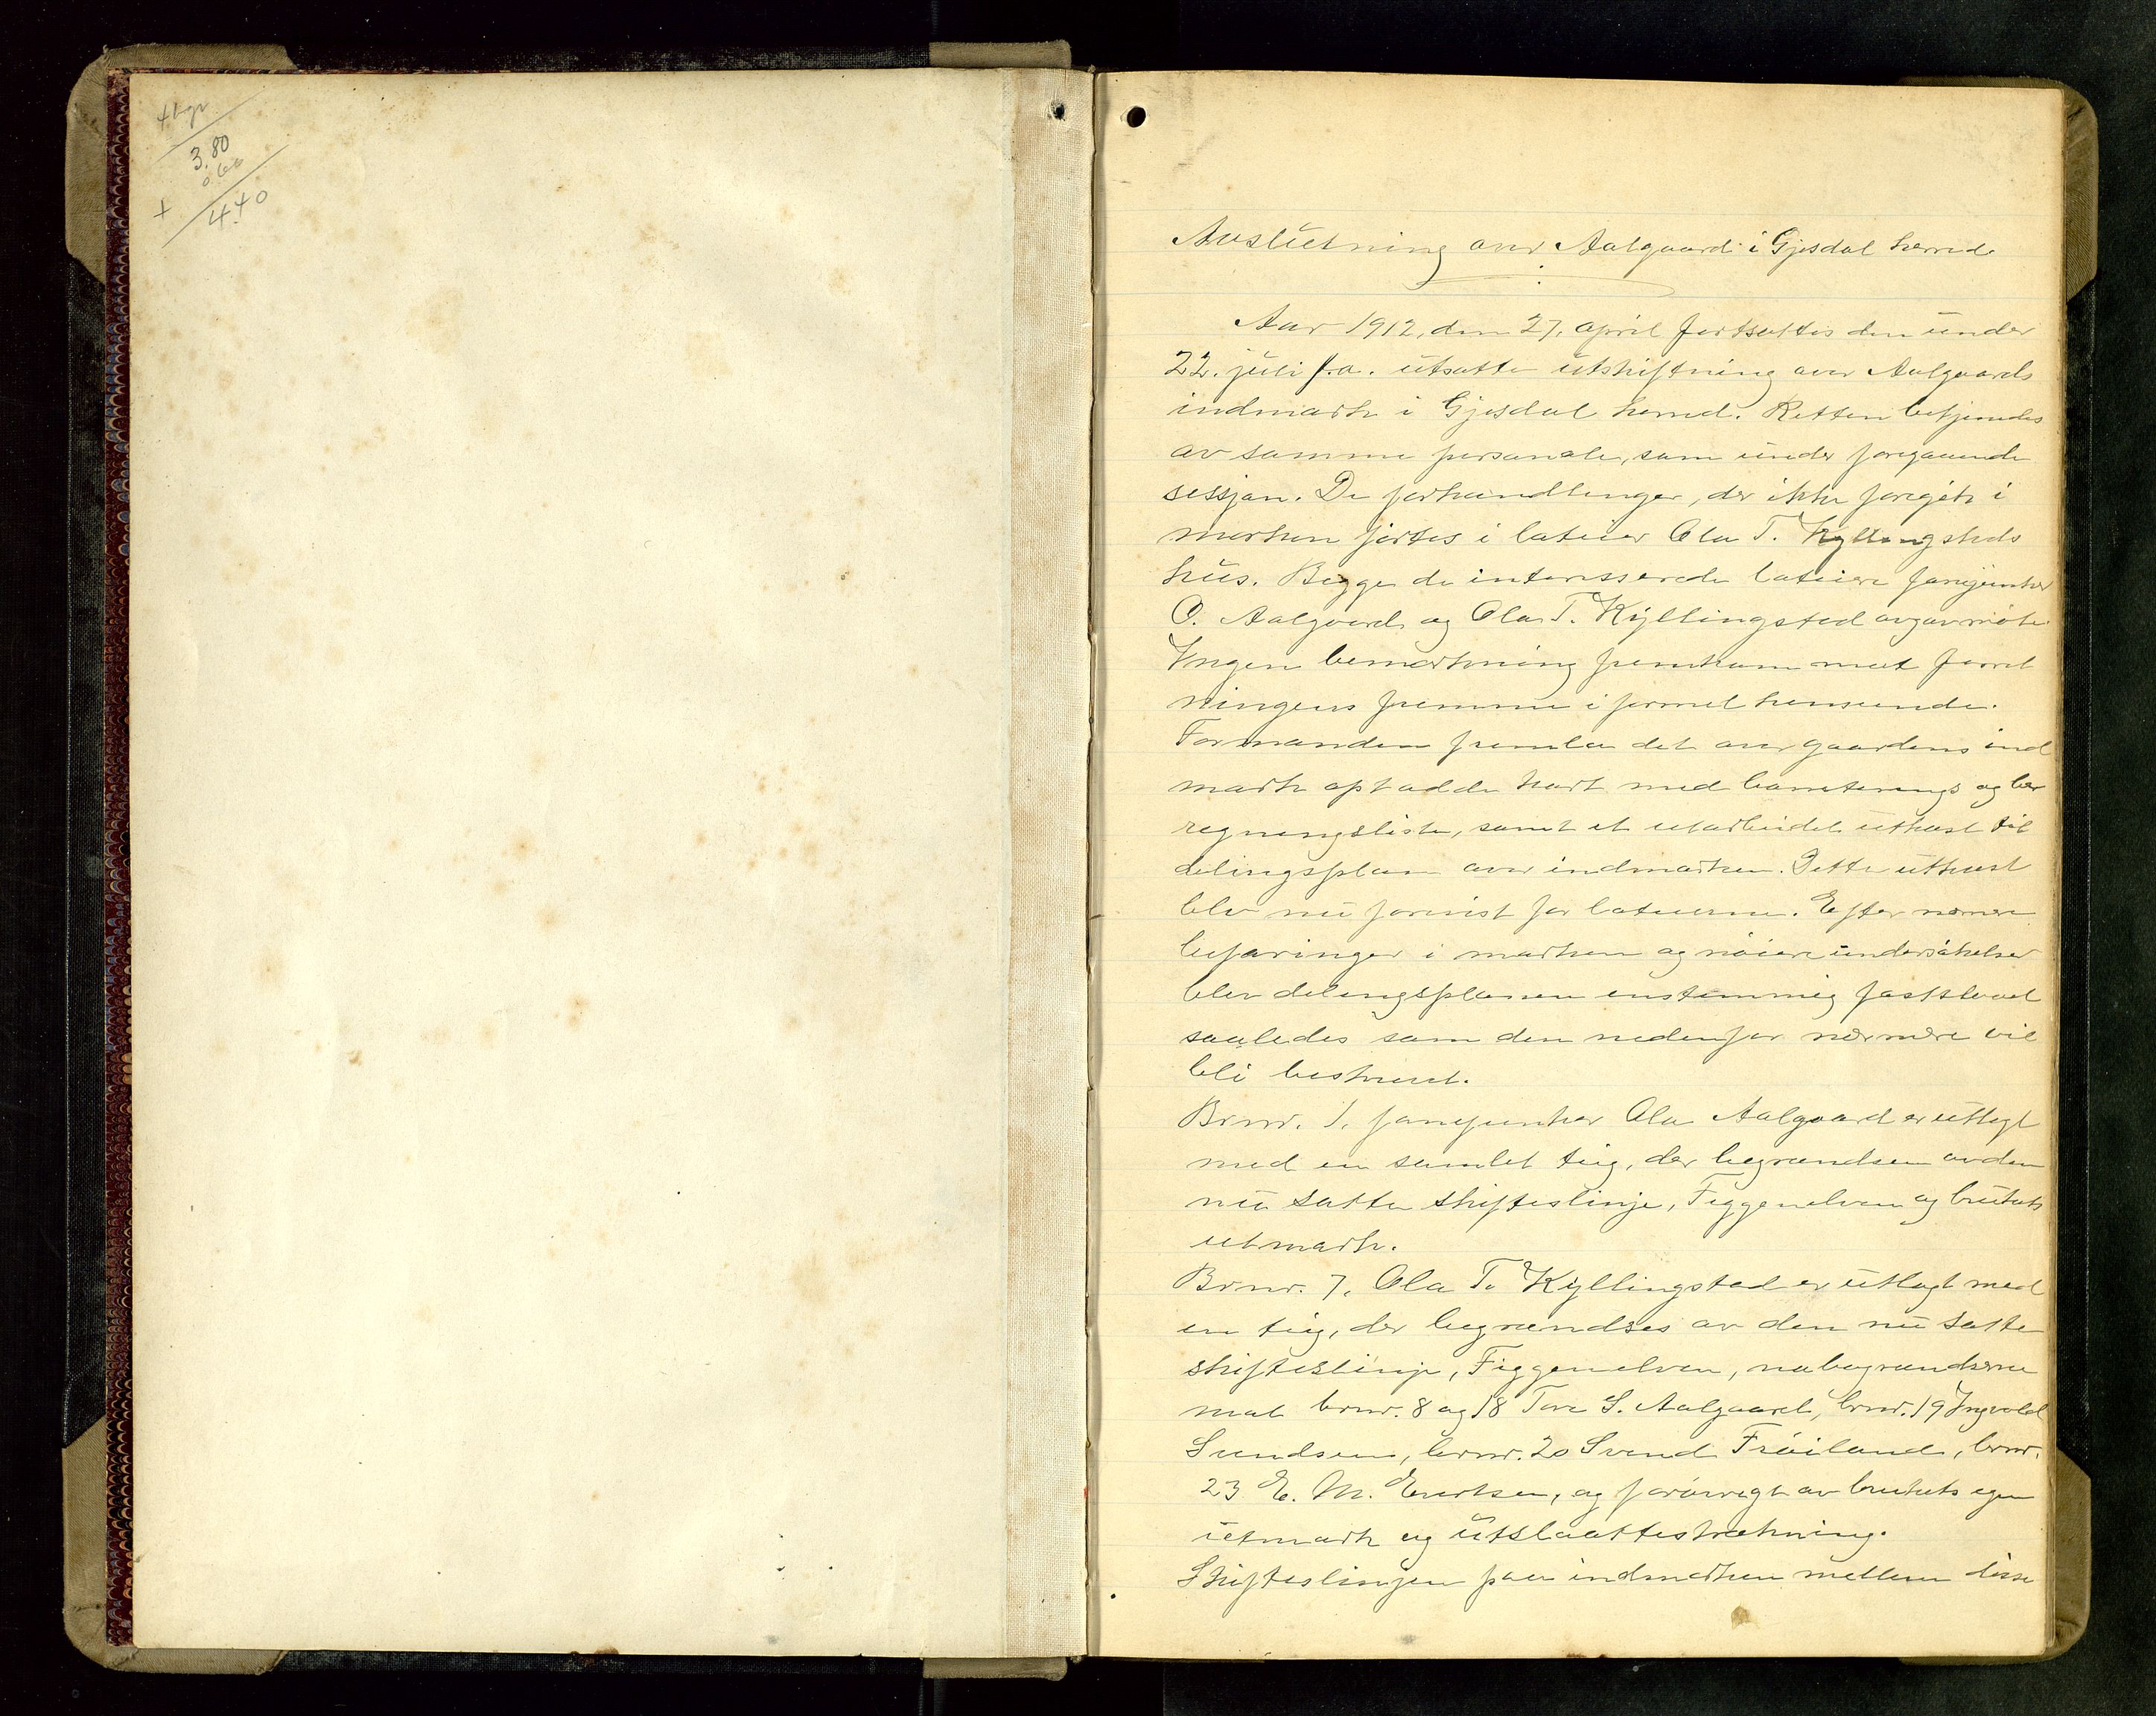 3.80
0.60
+ 4.40
Avslutning over Aalgaard i Gjesdal herred.
Aar 1912, den 27. april fortsattes den under
22. juli f.a. utsatte utskiftning over Aalgaards
indmark i Gjesdal herred. Retten betjentes
av samme personale, som under foregaaende
sessjon. De forhandlinger, der ikke foregik i
marken førtes i loteier Ola T. Kyllingstads
hus. Begge de interesserede loteiere fanejunker
O. Aalgaard og Ola T. Kyllingstad avgav møte.
Ingen bemerkning fremkom mot forret
ningens fremme i formel henseende.
Formanden fremla det over gaardens ind
mark optadde kart med boniterings og be
regningsliste, samt et utarbeidet utkast til
delingsplan over indmarken. Dette utkast
blev nu forevist for loteierne. Efter nærmere
befaringer i marken og nøiere undersøkelser
blev delingsplanen enstemmig fastslaat
saaledes som den nedenfor nærmere vil
bli beskrevet.
Brnr. 1, fanejunker Ola Aalgaard er utlagt
med en samlet teig, der begrændses av den
nu satte skifteslinje, Figgenelven og brukets
utmark.
Brnr. 7, Ola T. Kyllingstad er utlagt med
en teig, der begrændses av den nu satte
skifteslinje, Figgenelven, nabogrændserne
mot brnr. 8 og 18 Tore S. Aalgaard, brnr. 19 Ingvald
Svendsen, brnr. 20 Svend Frøiland, brnr.
23 E. M. Evertsen, og forøvrigt av brukets egen
utmark og utslaattestrækning.
Skifteslinjen paa indmarken mellem disse